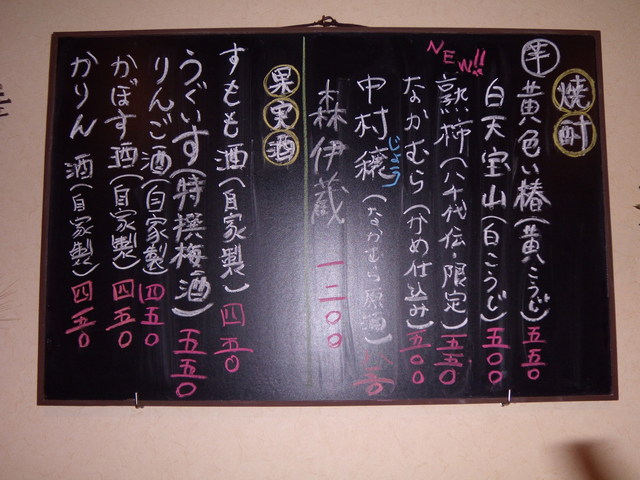 焼酎
芋
黄色い椿(黄こうじ)五五〇
白天宝山(白こうじ)五〇〇
NEW!!
熟柿(八十代伝・限定)五五〇
なかむら(かめ仕込み)五〇〇
中村穣(なかむら原酒)
じょう
森伊蔵 一二〇〇
果実酒
すもも酒(自家製)四五〇
うぐいす(特撰梅酒)五五〇
りんご酒(自家製)四五〇
かぼす酒(自家製)四五〇
かりん酒(自家製)四五〇